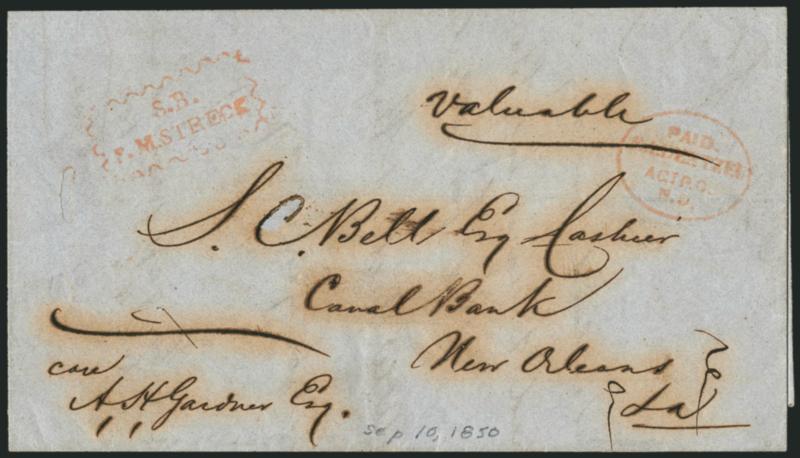 S.B.
F. M. STRECK
Valuable
PAID.
AGT P.O.
N.O.
S. C. Bell Esq Cashier
Canal Bank
New Orleans
La
care
A H Gardner Esq.
Sep 10, 1850